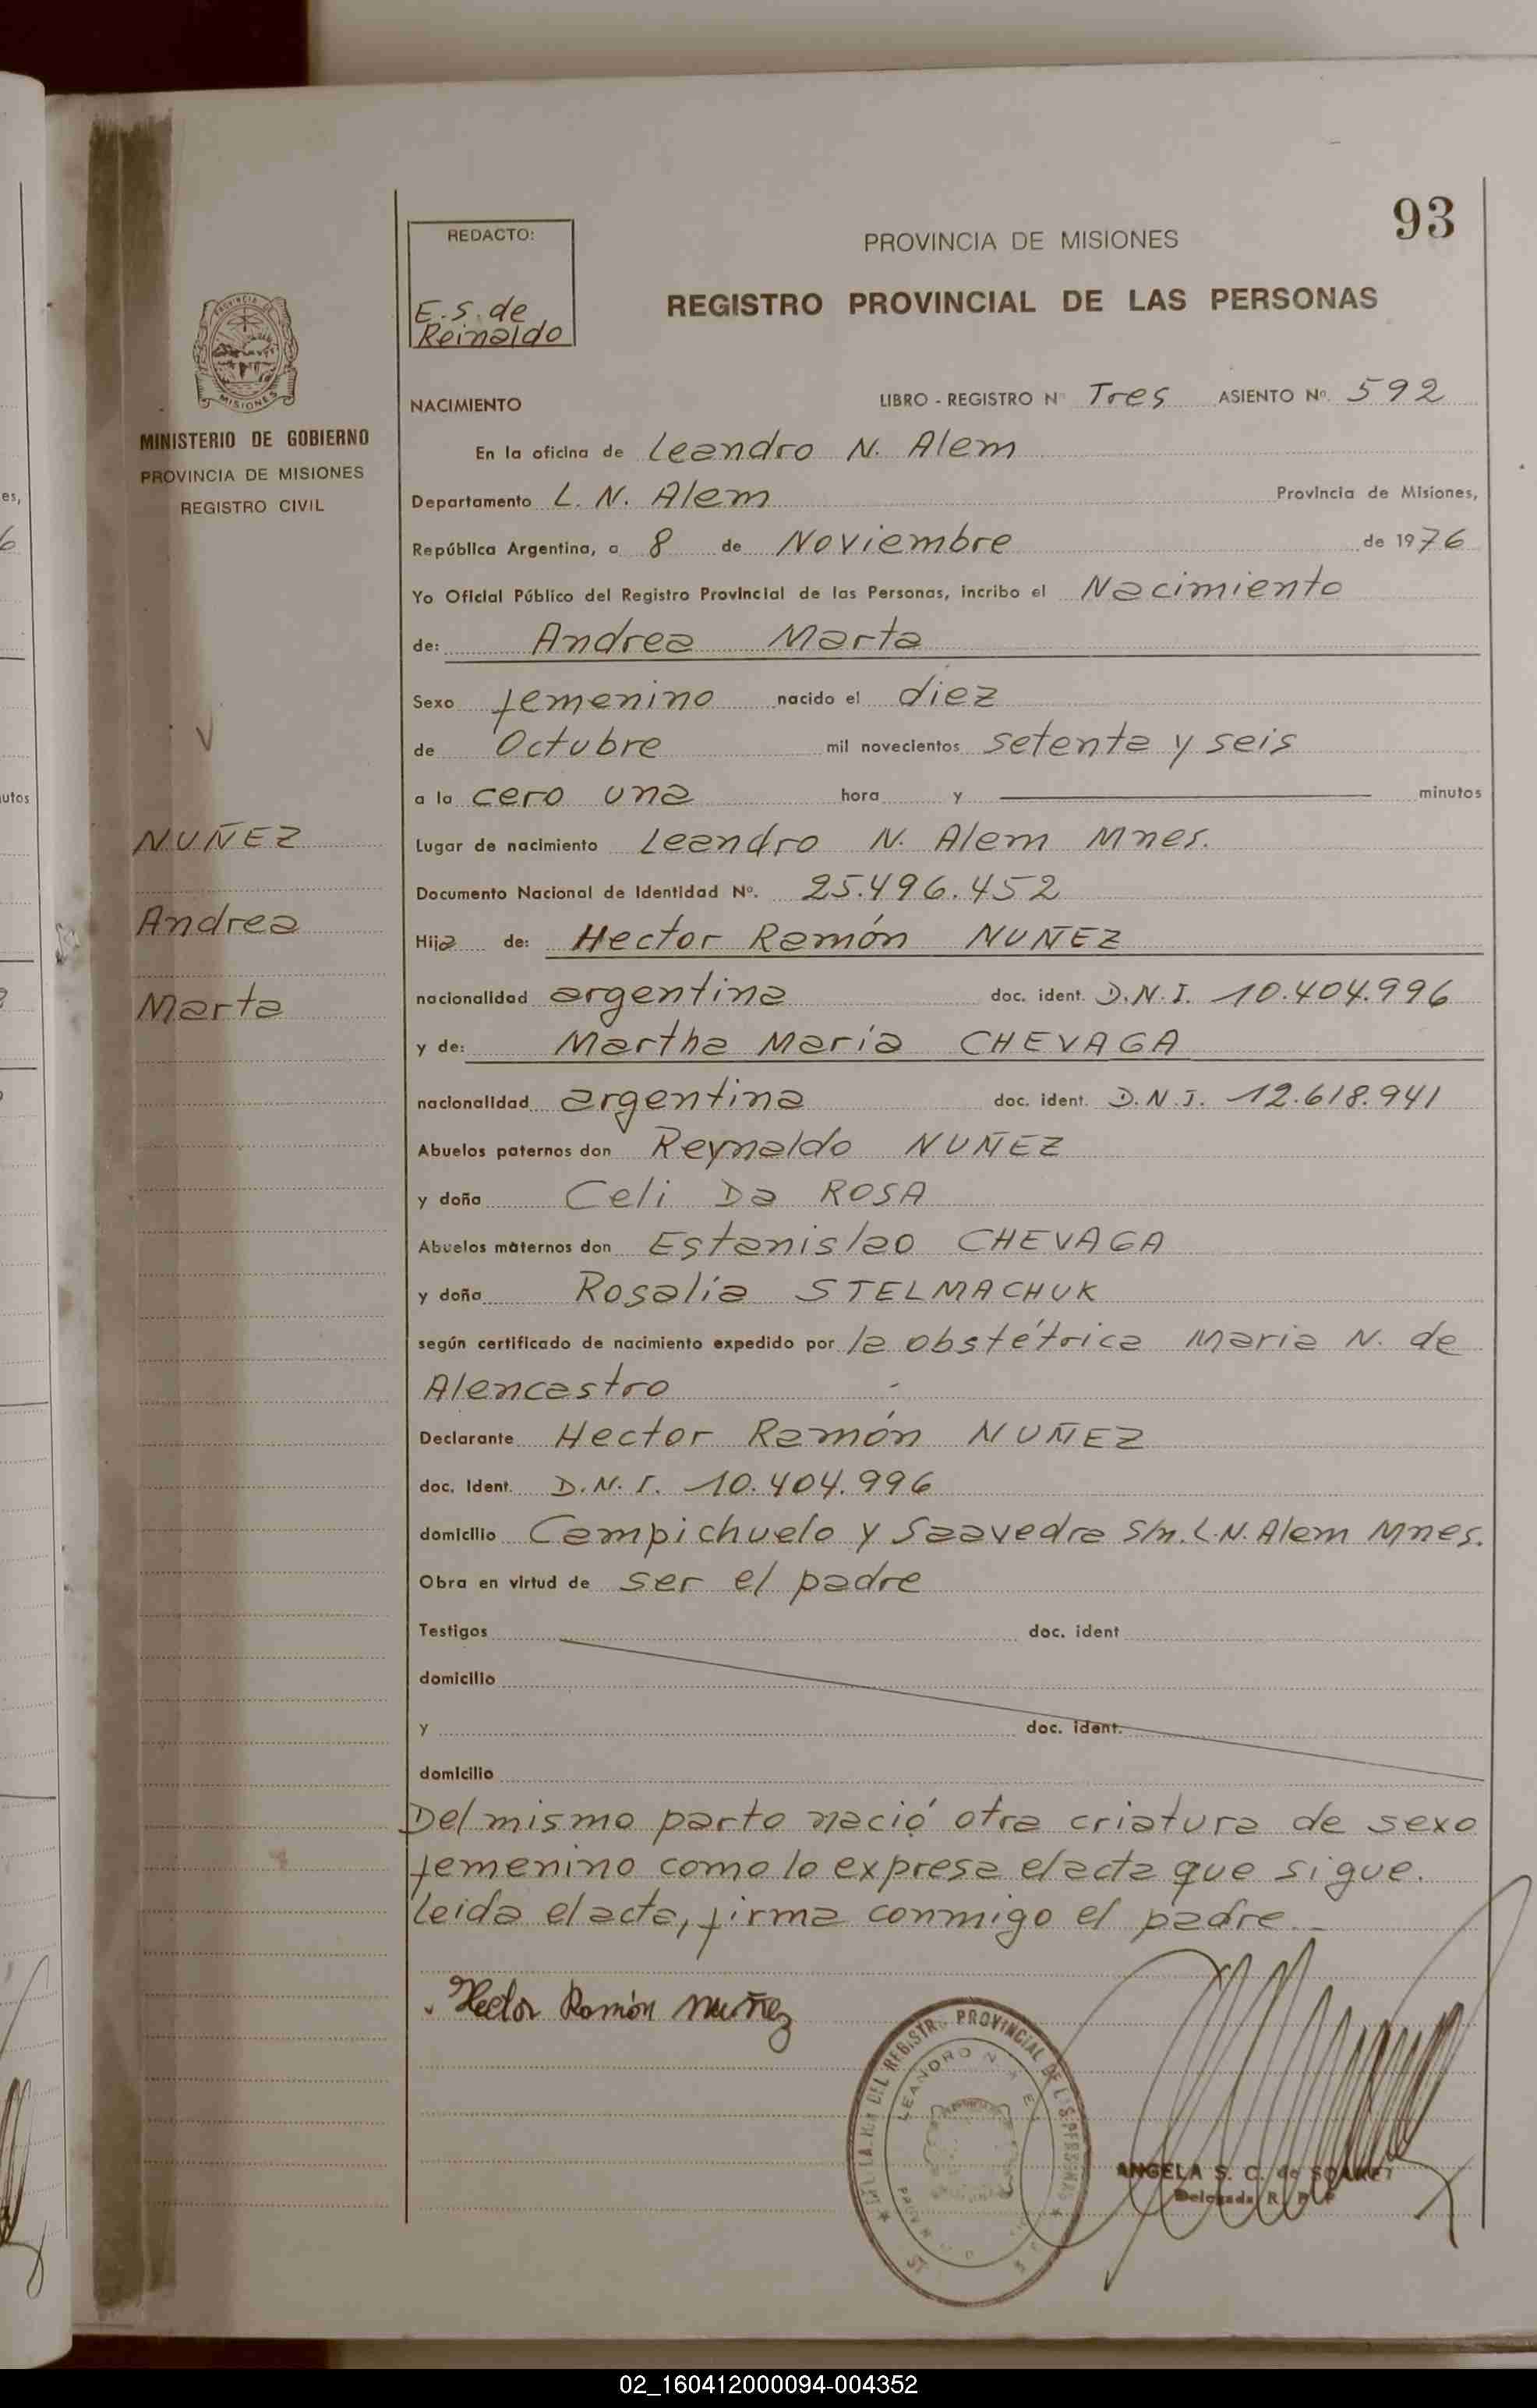 93
REDACTO:
E.S. de
Reinaldo
PROVINCIA DE MISIONES
REGISTRO PROVINCIAL DE LAS PERSONAS
PROVINCIA DE
MISIONES
MINISTERIO DE GOBIERNO
PROVINCIA DE MISIONES
REGISTRO CIVIL
NUÑEZ
Andrea
Marta
NACIMIENTO
LIBRO - REGISTRO Nº Tres ASIENTO Nº. 592
En la oficina de Leandro N. Alem
Departamento L. N. Alem Provincia de Misiones,
República Argentina, a 8 de Noviembre de 1976
Yo Oficial Público del Registro Provincial de las Personas, incribo el Nacimiento
de: Andrea Marta
Sexo femenino nacido el diez
de Octubre mil novecientos setenta y seis
a la cero una hora y minutos
Lugar de nacimiento Leandro N. Alem Mnes.
Documento Nacional de Identidad Nº. 25.496.452
Hija de: Hector Ramón NUÑEZ
nacionalidad argentina doc. ident. D.N.I. 10.404.996
y de: Martha María CHEVAGA
nacionalidad argentina doc. ident. D.N.I. 12.618.941
Abuelos paternos don Reynaldo NUÑEZ
y doña Celi Da ROSA
Abuelos maternos don Estanislao CHEVAGA
y doña Rosalía STELMACHUK
según certificado de nacimiento expedido por la obstétrica Maria N. de
Alencastro
Declarante Hector Ramón NUÑEZ
doc. Ident. D.N.I. 10.404.996
domicilio Campichuelo y Saavedra S/n. L.N. Alem Mnes.
Obra en virtud de ser el padre
Testigos doc. ident
domicilio
y doc. ident.
domicilio
Del mismo parto nació otra criatura de sexo
femenino como lo expresa el acta que sigue.
Leida el acta, firma conmigo el padre.
Hector Ramón Nuñez
DEL REGISTRO PROVINCIAL DE LAS PERSONAS
LEANDRO N.
ANGELA S. C. de
Delegada R. P. P.
es,
6
utos
02_160412000094-004352